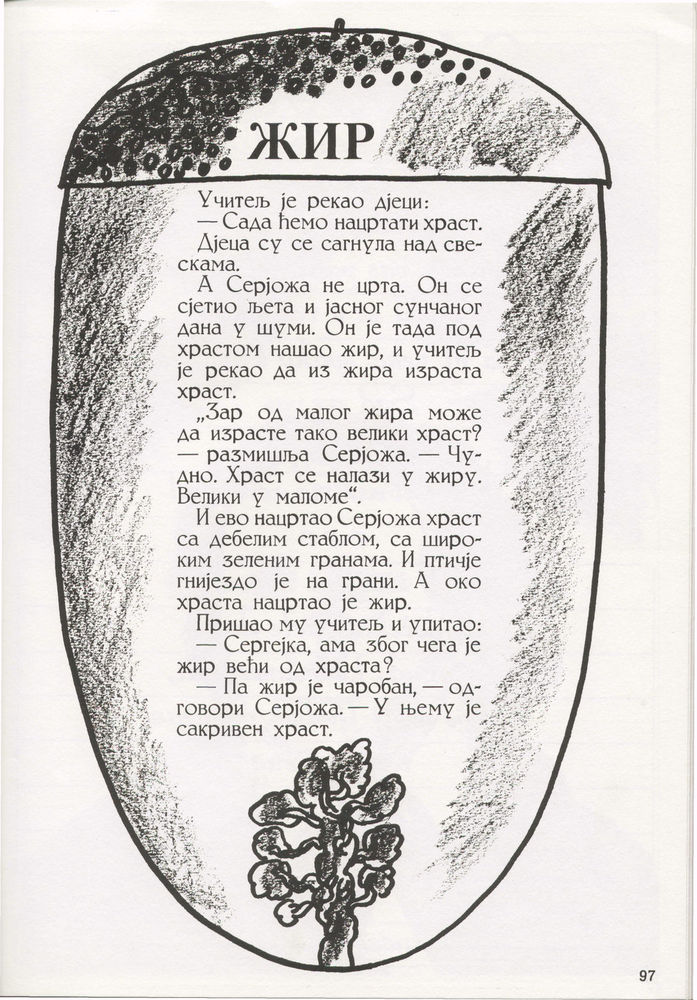 ЖИР
Учитељ је рекао дјеци:
— Сада ћемо нацртати храст.
Дјеца су се сагнула над све-
скама.
А Серјожа не црта. Он се
сјетио љета и јасног сунчаног
дана у шуми. Он је тада под
храстом нашао жир, и учитељ
је рекао да из жира израста
храст.
„Зар од малог жира може
да израсте тако велики храст?
— размишља Серјожа. — Чу-
дно. Храст се налази у жиру.
Велики у маломе“.
И ево нацртао Серјожа храст
са дебелим стаблом, са широ-
ким зеленим гранама. И птичје
гнијездо је на грани. А око
храста нацртао је жир.
Пришао му учитељ и упитао:
— Сергејка, ама због чега је
жир већи од храста?
— Па жир је чаробан, — од-
говори Серјожа. — У њему је
сакривен храст.
97